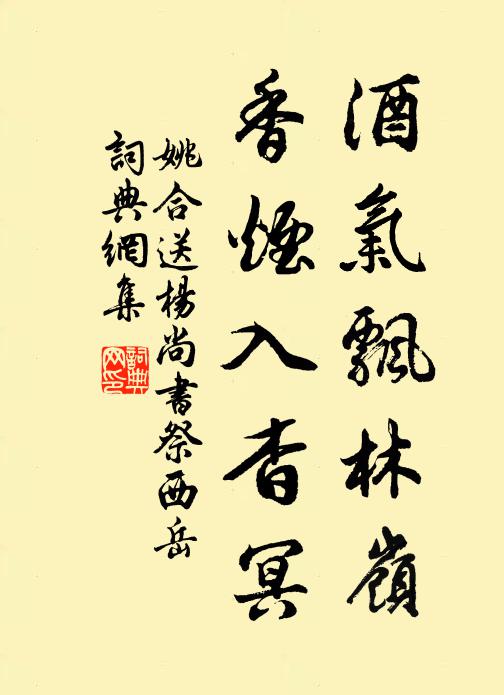 酒氣飄林嶺
香煙入杳冥
姚合送楊尚書祭西岳
詞典網集
詞典
网印